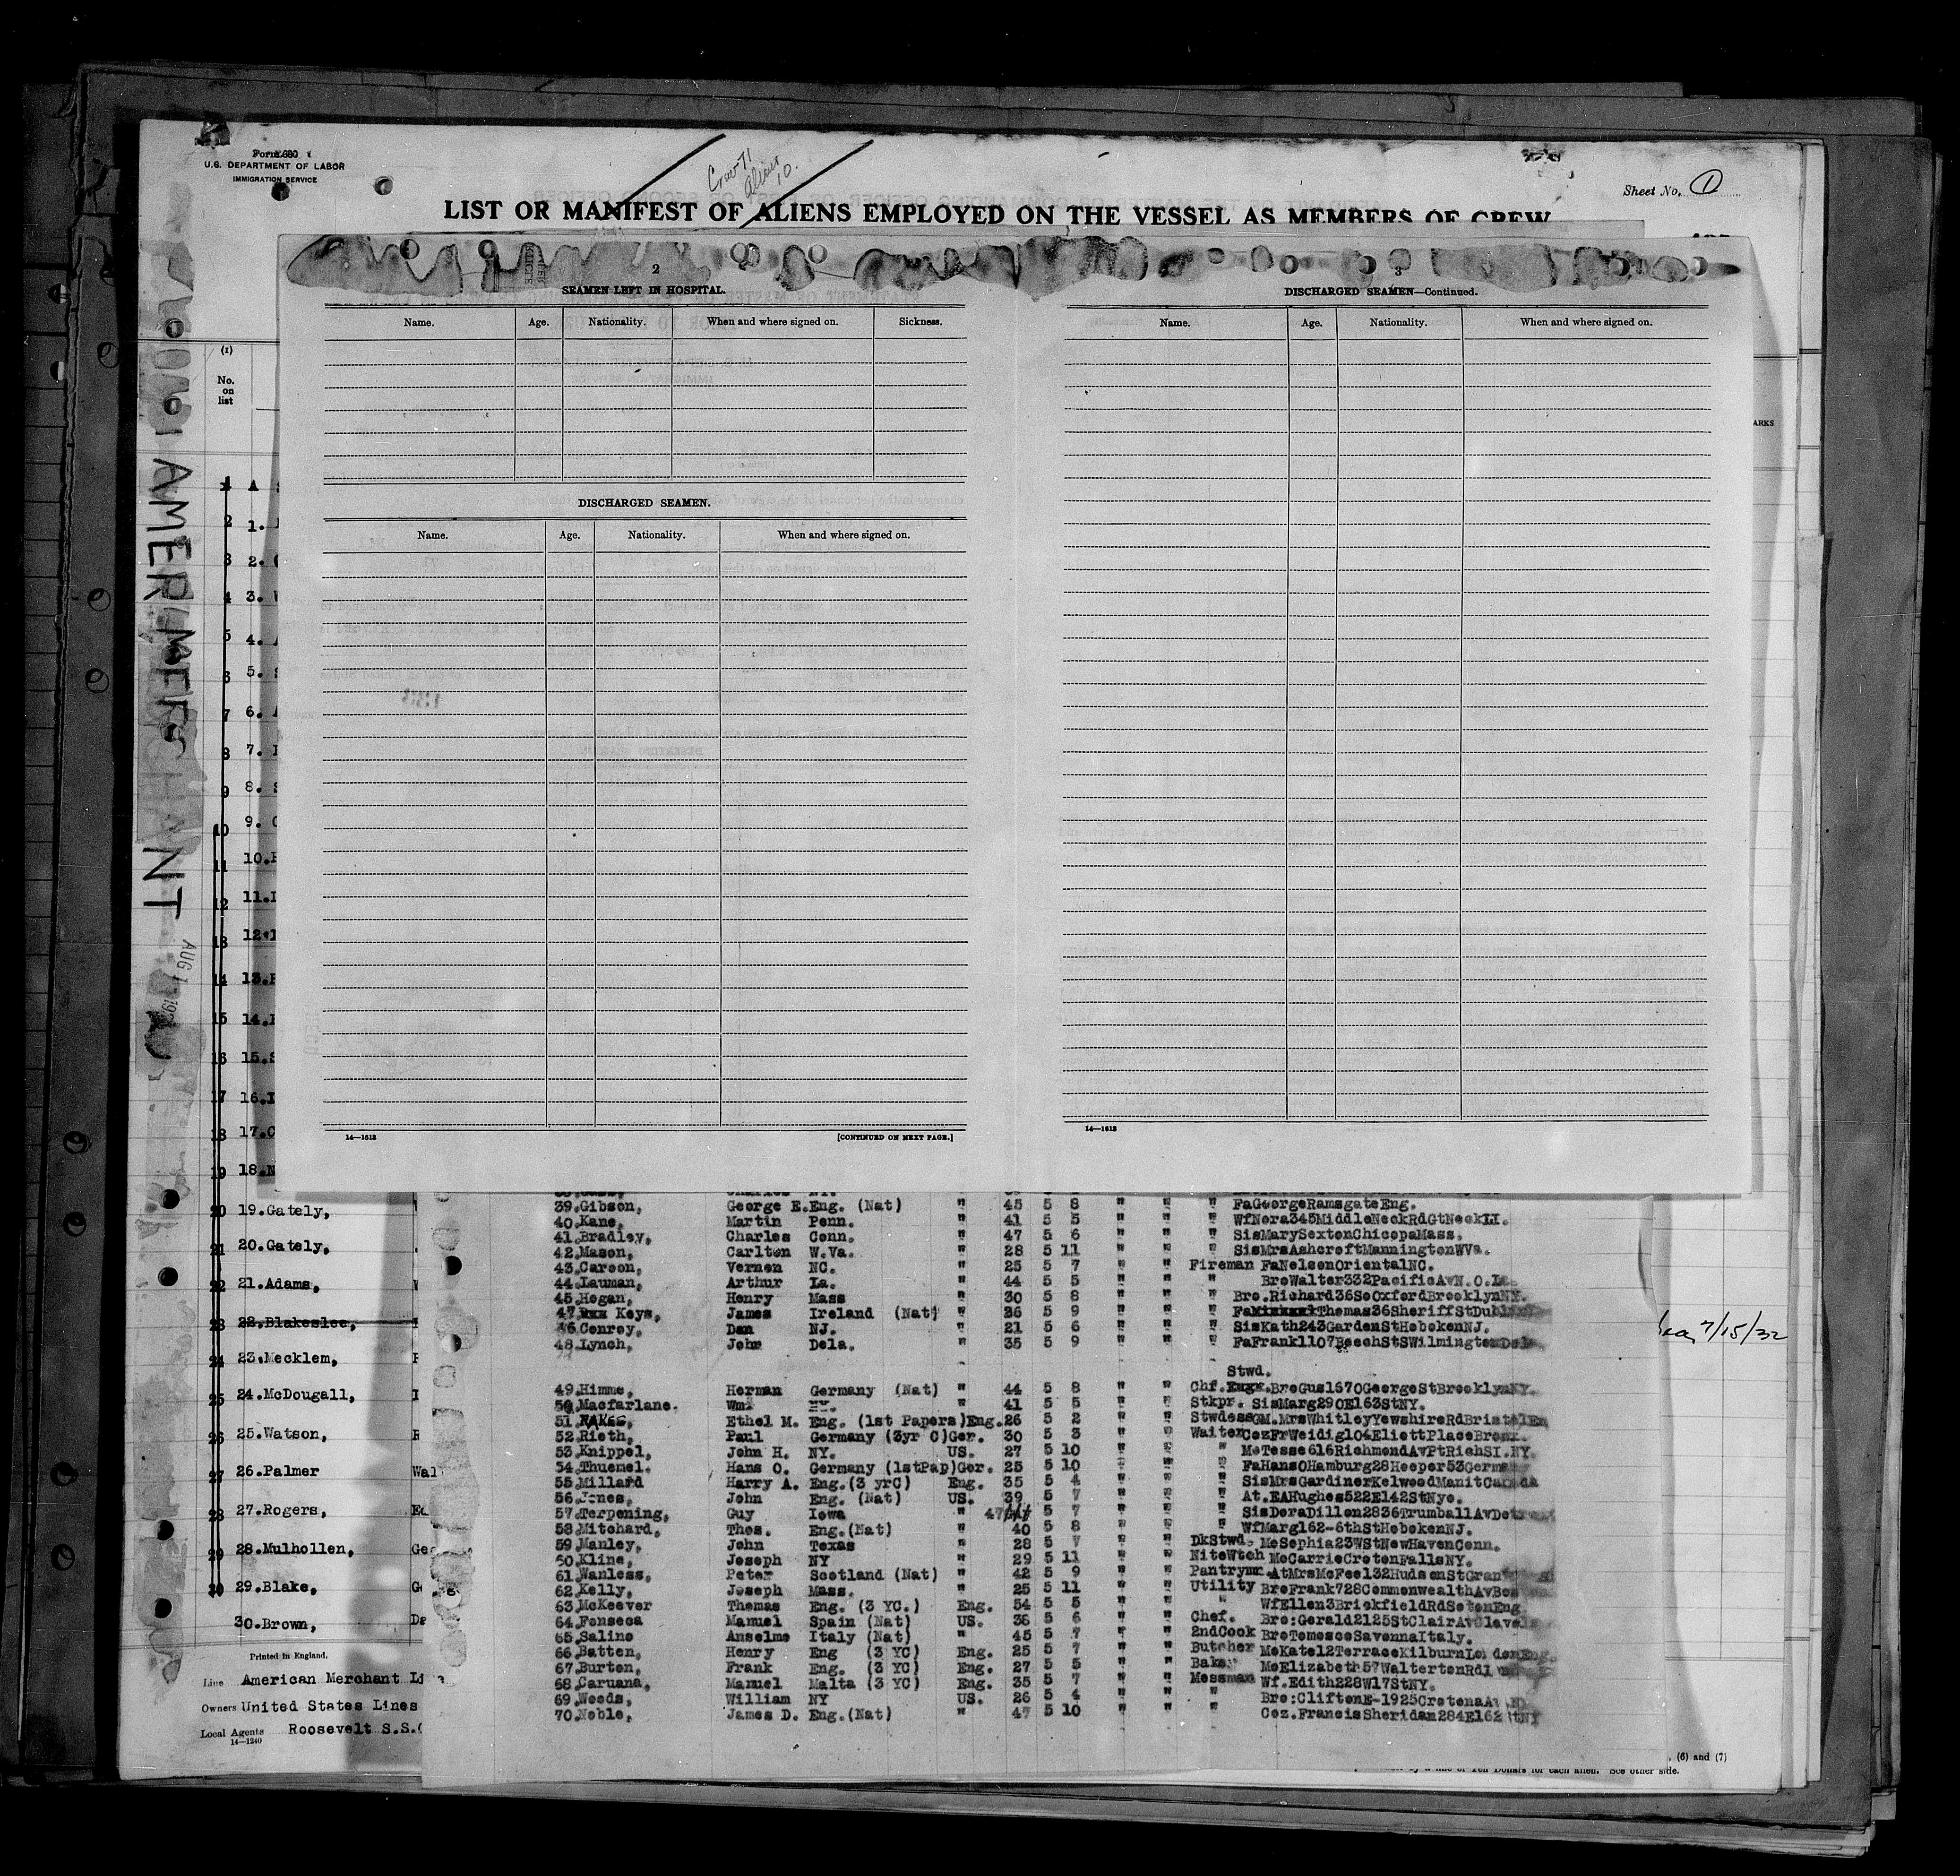 Form 680
U.S. DEPARTMENT OF LABOR
IMMIGRATION SERVICE
Crew 71
Aliens
10.
Sheet No. 1
LIST OR MANIFEST OF ALIENS EMPLOYED ON THE VESSEL AS MEMBERS OF CREW
AMER MERCHANT
AUG 1
(1)
No.
on
list
ARKS
2
SEAMEN LEFT IN HOSPITAL.
Name. Age. Nationality. When and where signed on. Sickness.
DISCHARGED SEAMEN.
Name. Age. Nationality. When and where signed on.
14—1613 [CONTINUED ON NEXT PAGE.]
3
DISCHARGED SEAMEN—Continued.
Name. Age. Nationality. When and where signed on.
14—1613
1 A
2 1.
3 2.
4 3.
5 4.
6 5.
7 6.
8 7.
9 8.
10 9.
11 10.
12 11.
13 12.
14 13.
15 14.
16 15.
17 16.
18 17.
19 18.
20 19.Gately,
21 20.Gately,
22 21.Adams,
23 22.Blakeslee,
24 23.Mecklem,
25 24.McDougall,
26 25.Watson,
27 26.Palmer Wal
28 27.Rogers, Ed
29 28.Mulhollen, Geo
30 29.Blake, Ge
30.Brown, Da
39.Gibson, George E.Eng. (Nat) " 45 5 8 " " " FaGeorgeRamsgateEng.
40.Kane, Martin Penn. " 41 5 5 " " " WfNora345MiddleNeckRdGtNeckLI.
41.Bradley, Charles Conn. " 47 5 6 " " " SisMarySextonChicopaMass.
42.Mason, Carlton W.Va. " 28 5 11 " " " SisMrsAshcroftManningtonWVa.
43.Carson, Vernon NC. " 25 5 7 " " Fireman FaNelsonOrientalNC.
44.Lauman, Arthur La. " 44 5 5 " " " BroWalter332PacificAvN.O.La
45.Hogan, Henry Mass " 30 5 8 " " " Bro.Richard36SoOxfordBrooklynNY.
47. Keys, James Ireland (Nat) " 26 5 9 " " " Thomas36SheriffStDublin
46.Conroy, Dan NJ. " 21 5 6 " " " SisKath243GardenStHobokenNJ.
48.Lynch, John Dela. " 35 5 9 " " " FaFrank1107BeechStSWilmingtonDela.
Stwd.
49.Himme, Herman Germany (Nat) " 44 5 8 " " Chf. BroGus1670GeorgeStBrooklynNY.
50.Macfarlane. Wm. NY. " 41 5 5 " " Stkpr. SisMarg290E163StNY.
51. Ethel M. Eng. (1st Papers)Eng.26 5 2 " " StwdessGM.MrsWhitleyYewshireRdBristolEn
52.Rieth, Paul Germany (3yr C)Ger. 30 5 3 " " WaiterCozFrWeidig104EliettPlaceBronx.
53.Knippel, John H. NY. US. 27 5 10 " " " MoTesse616RichmondAvPtRichSI.NY.
54.Thuemel. Hans O. Germany (1stPap)Ger. 25 5 10 " " " FaHansOHamburg28Hooper53Germany
55.Millard Harry A. Eng.(3 yrC) Eng. 35 5 4 " " " SisMrsGardinerKelwoodManitCanada
56.Jones, John Eng. (Nat) US. 39 5 7 " " " At.EAHughes522E142StNyc.
57.Terpening, Guy Iowa " 47 5 7 " " " SisDoraDillon2836TrumballAvDetroit
58.Mitchard, Thos. Eng.(Nat) " 40 5 8 " " " WfMarg162-6thStHobokenNJ.
59.Manley, John Texas " 28 5 7 " " DkStwd. MoSophia23WStNewHavenConn.
60.Kline, Joseph NY " 29 5 11 " " NiteWtch MoCarrieCrotonFallsNY.
61.Wanless, Peter Scotland (Nat) " 42 5 9 " " Pantrymn.AtMrsMcFee132HudsonStGran
62.Kelly, Joseph Mass. " 25 5 11 " " Utility BroFrank728CommonwealthAvBos
63.McKeever Thomas Eng. (3 YC.) Eng. 54 5 5 " " " WfEllen3BrickfieldRdSotonEng
64.Fonseca Manuel Spain (Nat) US. 36 5 6 " " Chef. Bro:Gerald2125StClairAvClevela
65.Saline Anselmo Italy (Nat) " 45 5 7 " " 2ndCook BroTomescoSavennaItaly.
66.Batten, Henry Eng (3 YC) Eng. 25 5 7 " " Butcher MoKate12TerraceKilburnLondonEng.
67.Burton, Frank Eng. (3 YC) Eng. 27 5 5 " " Baker MoElizabeth57WaltertonRd
68.Caruana, Manuel Malta (3 YC) Eng. 35 5 7 " " Messman Wf.Edith228W17StNY.
69.Woods, William NY US. 26 5 4 " " " Bro:CliftonE-1925CrotonaAv.NY
70.Noble, James D. Eng.(Nat) " 47 5 10 " " " Coz.FrancisSheridan284E162StNY
7/15/32
Printed in England.
Line American Merchant Li
Owners United States Lines
Local Agents Roosevelt S.S.C
14—1240
, (6) and (7)
by a fine of Ten Dollars for each alien. See other side.